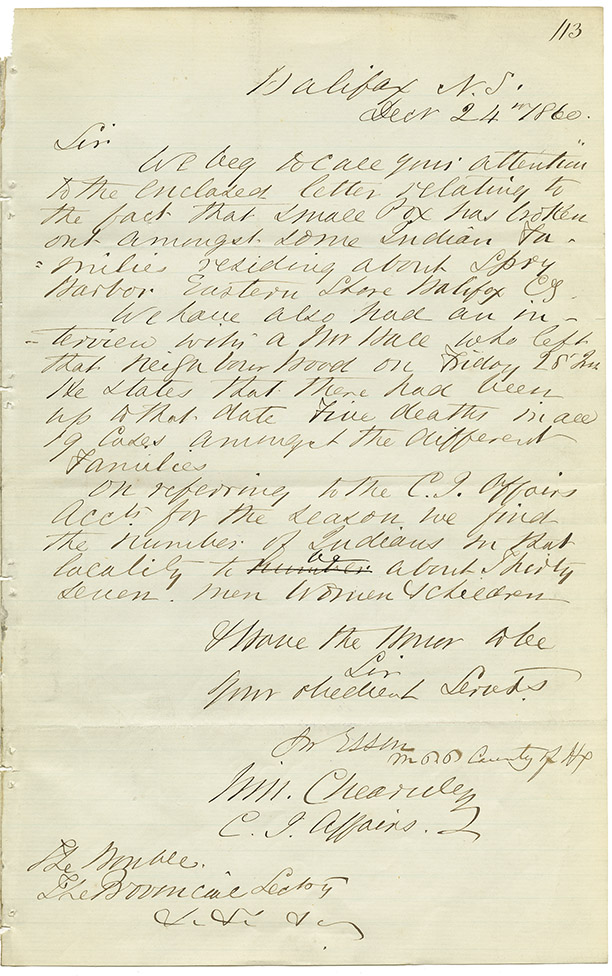 113
Halifax N.S.
Decr 24th 1860.
Sir
We beg to call your attention
to the enclosed letter relating to
the fact that Small Pox has broken
out amongst some Indian Fa-
=milies residing about Spry
Harbor Eastern Shore Halifax Co
We have also had an in-
-terview with a Mr Hall who left
that neighbour hood on Friday
He states that there had been
up to that date Five deaths in all
19 Cases amongst the different
Families
On referring to the C. I. Affairs
Accts for the season we find
the number of Indians in that
locality to be about Thirty
Seven. men Women & children
I have the honor to be
Sir
Your obedient Servts.
Jn Esson
M P P County of Hx
Wm. Chearnley
C. I. Affairs.
The Honble.
The Provincial Secty
&c &c &c